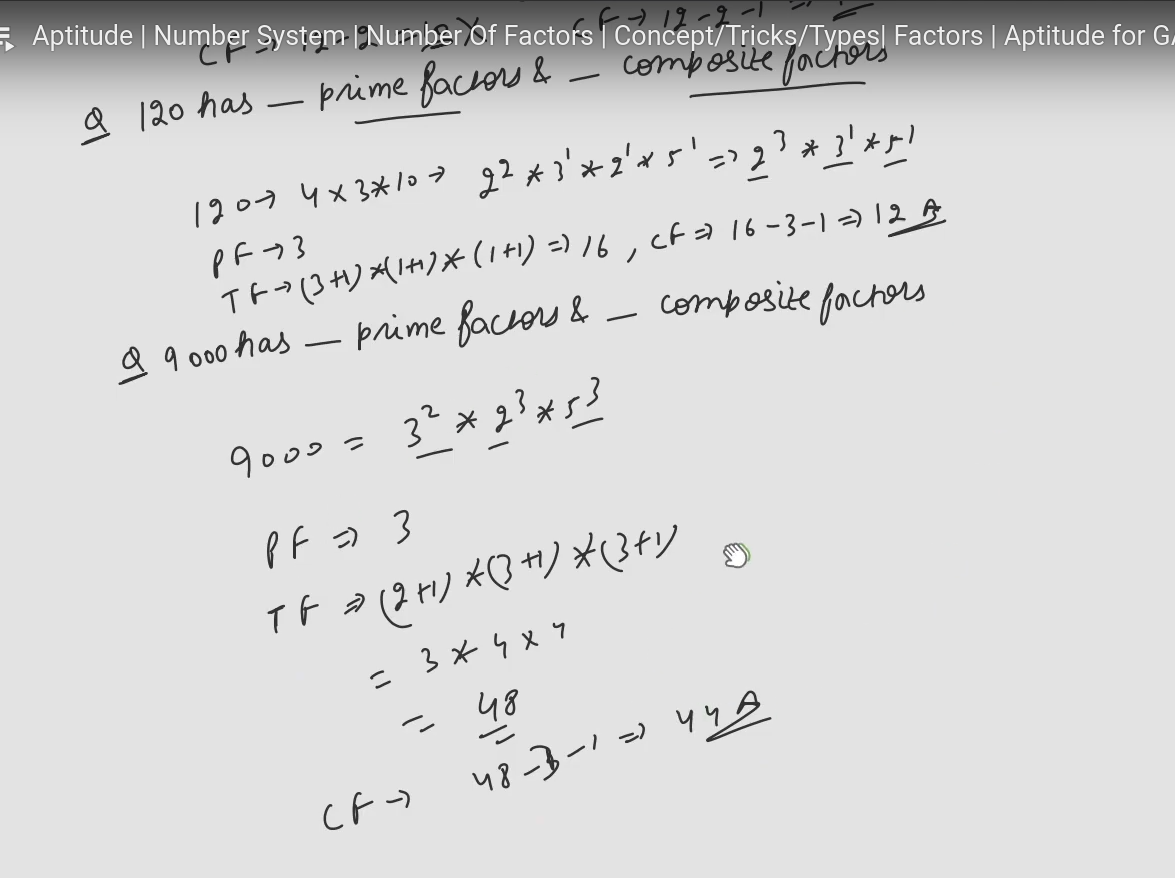 Aptitude | Number System | Number Of Factors | Concept/Tricks/Types| Factors | Aptitude for GA
CF → 12-2-1
Q 120 has — prime factors & — composite factors
120 → 4 × 3 * 10 → 2² * 3¹ * 2¹ × 5¹ => 2³ * 3¹ * 5¹
PF → 3
TF → (3+1) * (1+1) * (1+1) => 16 , CF => 16-3-1 => 12 A
Q 9000 has — prime factors & — composite factors
9000 = 3² * 2³ * 5³
PF => 3
TF => (2+1) * (3+1) * (3+1)
= 3 * 4 × 4
= 48
CF → 48-3-1 => 44 A